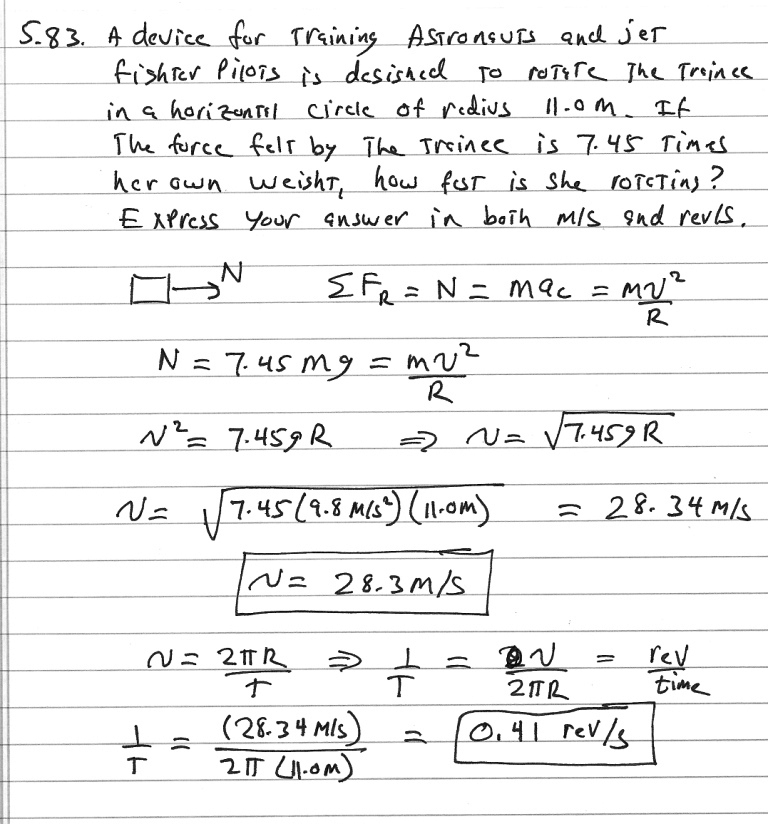 5.83. A device for Training Astronauts and jet
fighter Pilots is designed to rotate The Trainee
in a horizontal circle of radius 11.0 m. If
The force felt by The Trainee is 7.45 Times
her own weight, how fast is she rotating?
Express your answer in both m/s and rev/s.
N ΣF_R = N = ma_c = mv²/R
N = 7.45 mg = mv²/R
v² = 7.45gR ⇒ v = √7.45gR
v = √7.45(9.8 m/s²)(11.0m) = 28.34 m/s
v = 28.3 m/s
v = 2πR/T ⇒ 1/T = v/2πR = rev/time
1/T = (28.34 m/s)/2π (11.0m) = 0.41 rev/s